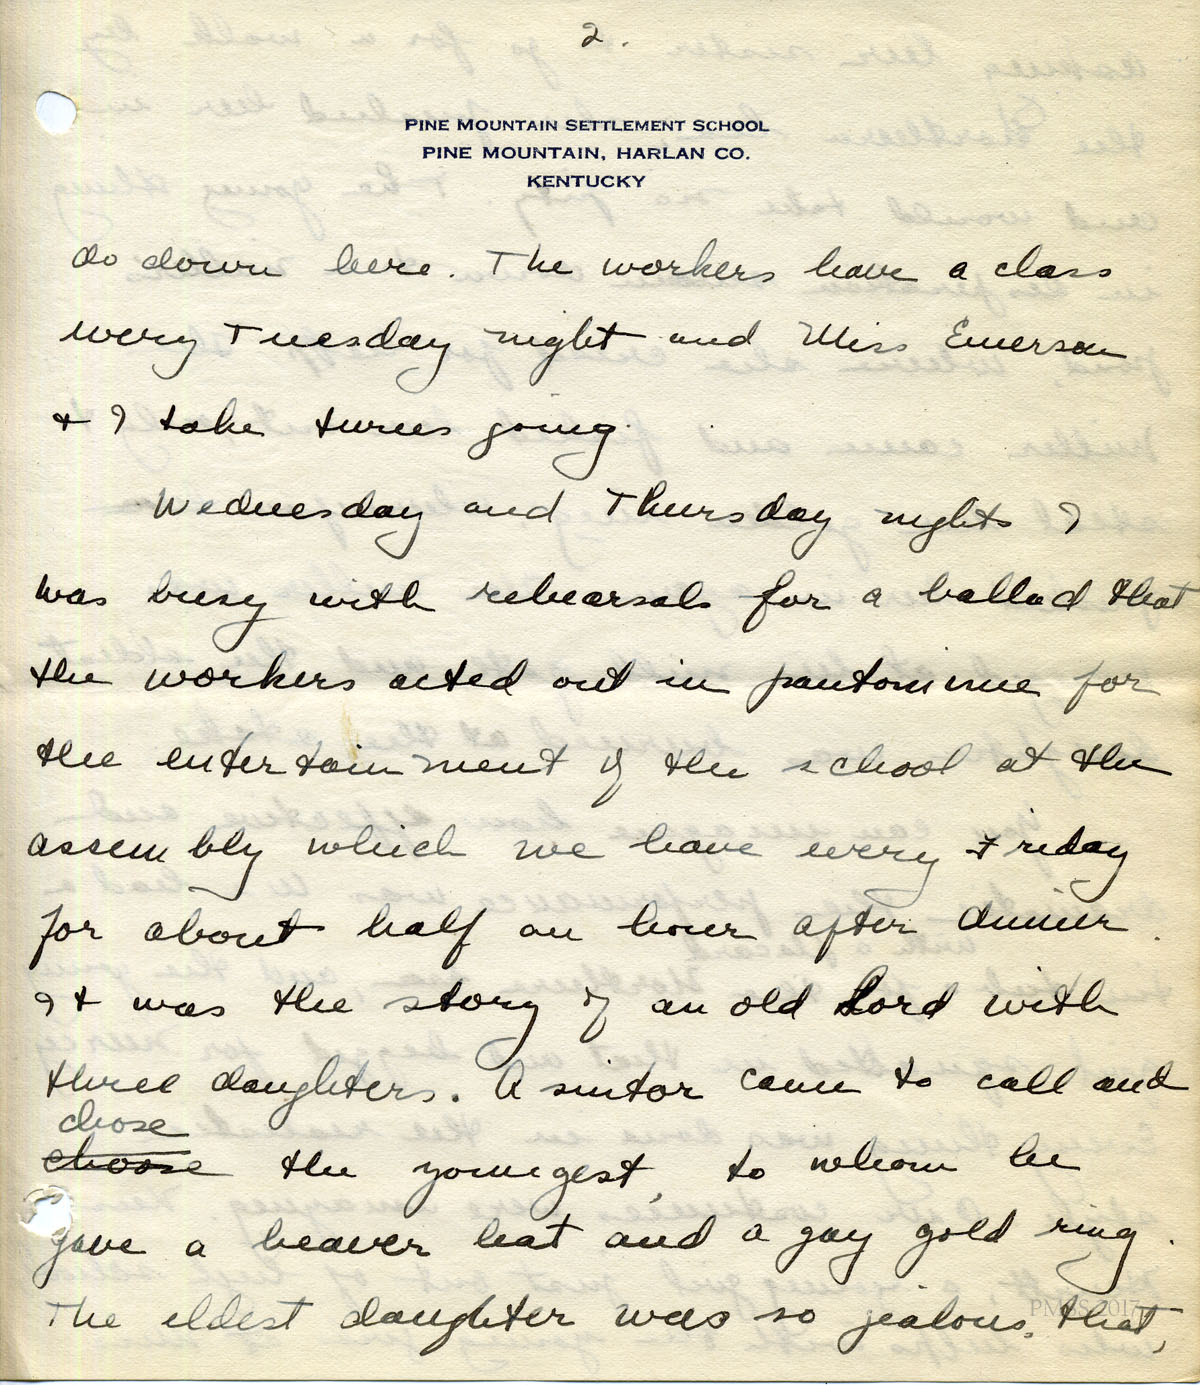 2.
PINE MOUNTAIN SETTLEMENT SCHOOL
PINE MOUNTAIN, HARLAN CO.
KENTUCKY
do down here. The workers have a class
every Tuesday night and Miss Emerson
+ I take turns going.
Wednesday and Thursday nights I
was busy with rehearsals for a ballad that
the workers acted out in pantomime for
the entertainment of the school at the
assembly which we have every Friday
for about half an hour after dinner.
It was the story of an old Lord with
three daughters. A suitor came to call and
chose
choose the youngest, to whom he
gave a beaver hat and a gay gold ring.
The eldest daughter was so jealous, that,
PMSS 2017